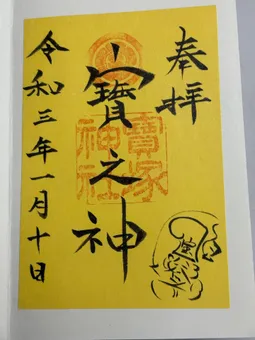 奉拝
寶之神
寶塚神社
令和三年一月十日